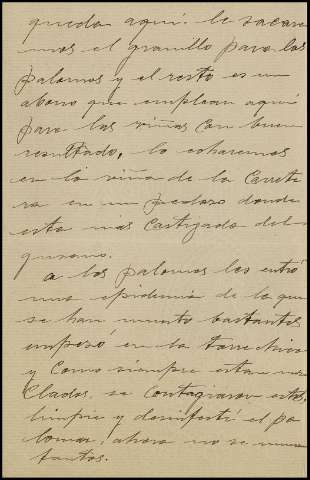 queda aquí: le sacare
mos el granillo para las
palomas y el resto es un
abono que emplean aquí
para las viñas con buen
resultado, lo echaremos
en la viña de la Carrete
ra en un pedazo donde
esta mas castigada del
gusano.
a las palomas les entró
una epidemia de la que
se han muerto bastantes
empezó en la torre
y como siempre estan mez
cladas, se contagiaron estas,
limpié y desinfecté el pa
lomar, ahora no se mueren
tantas.